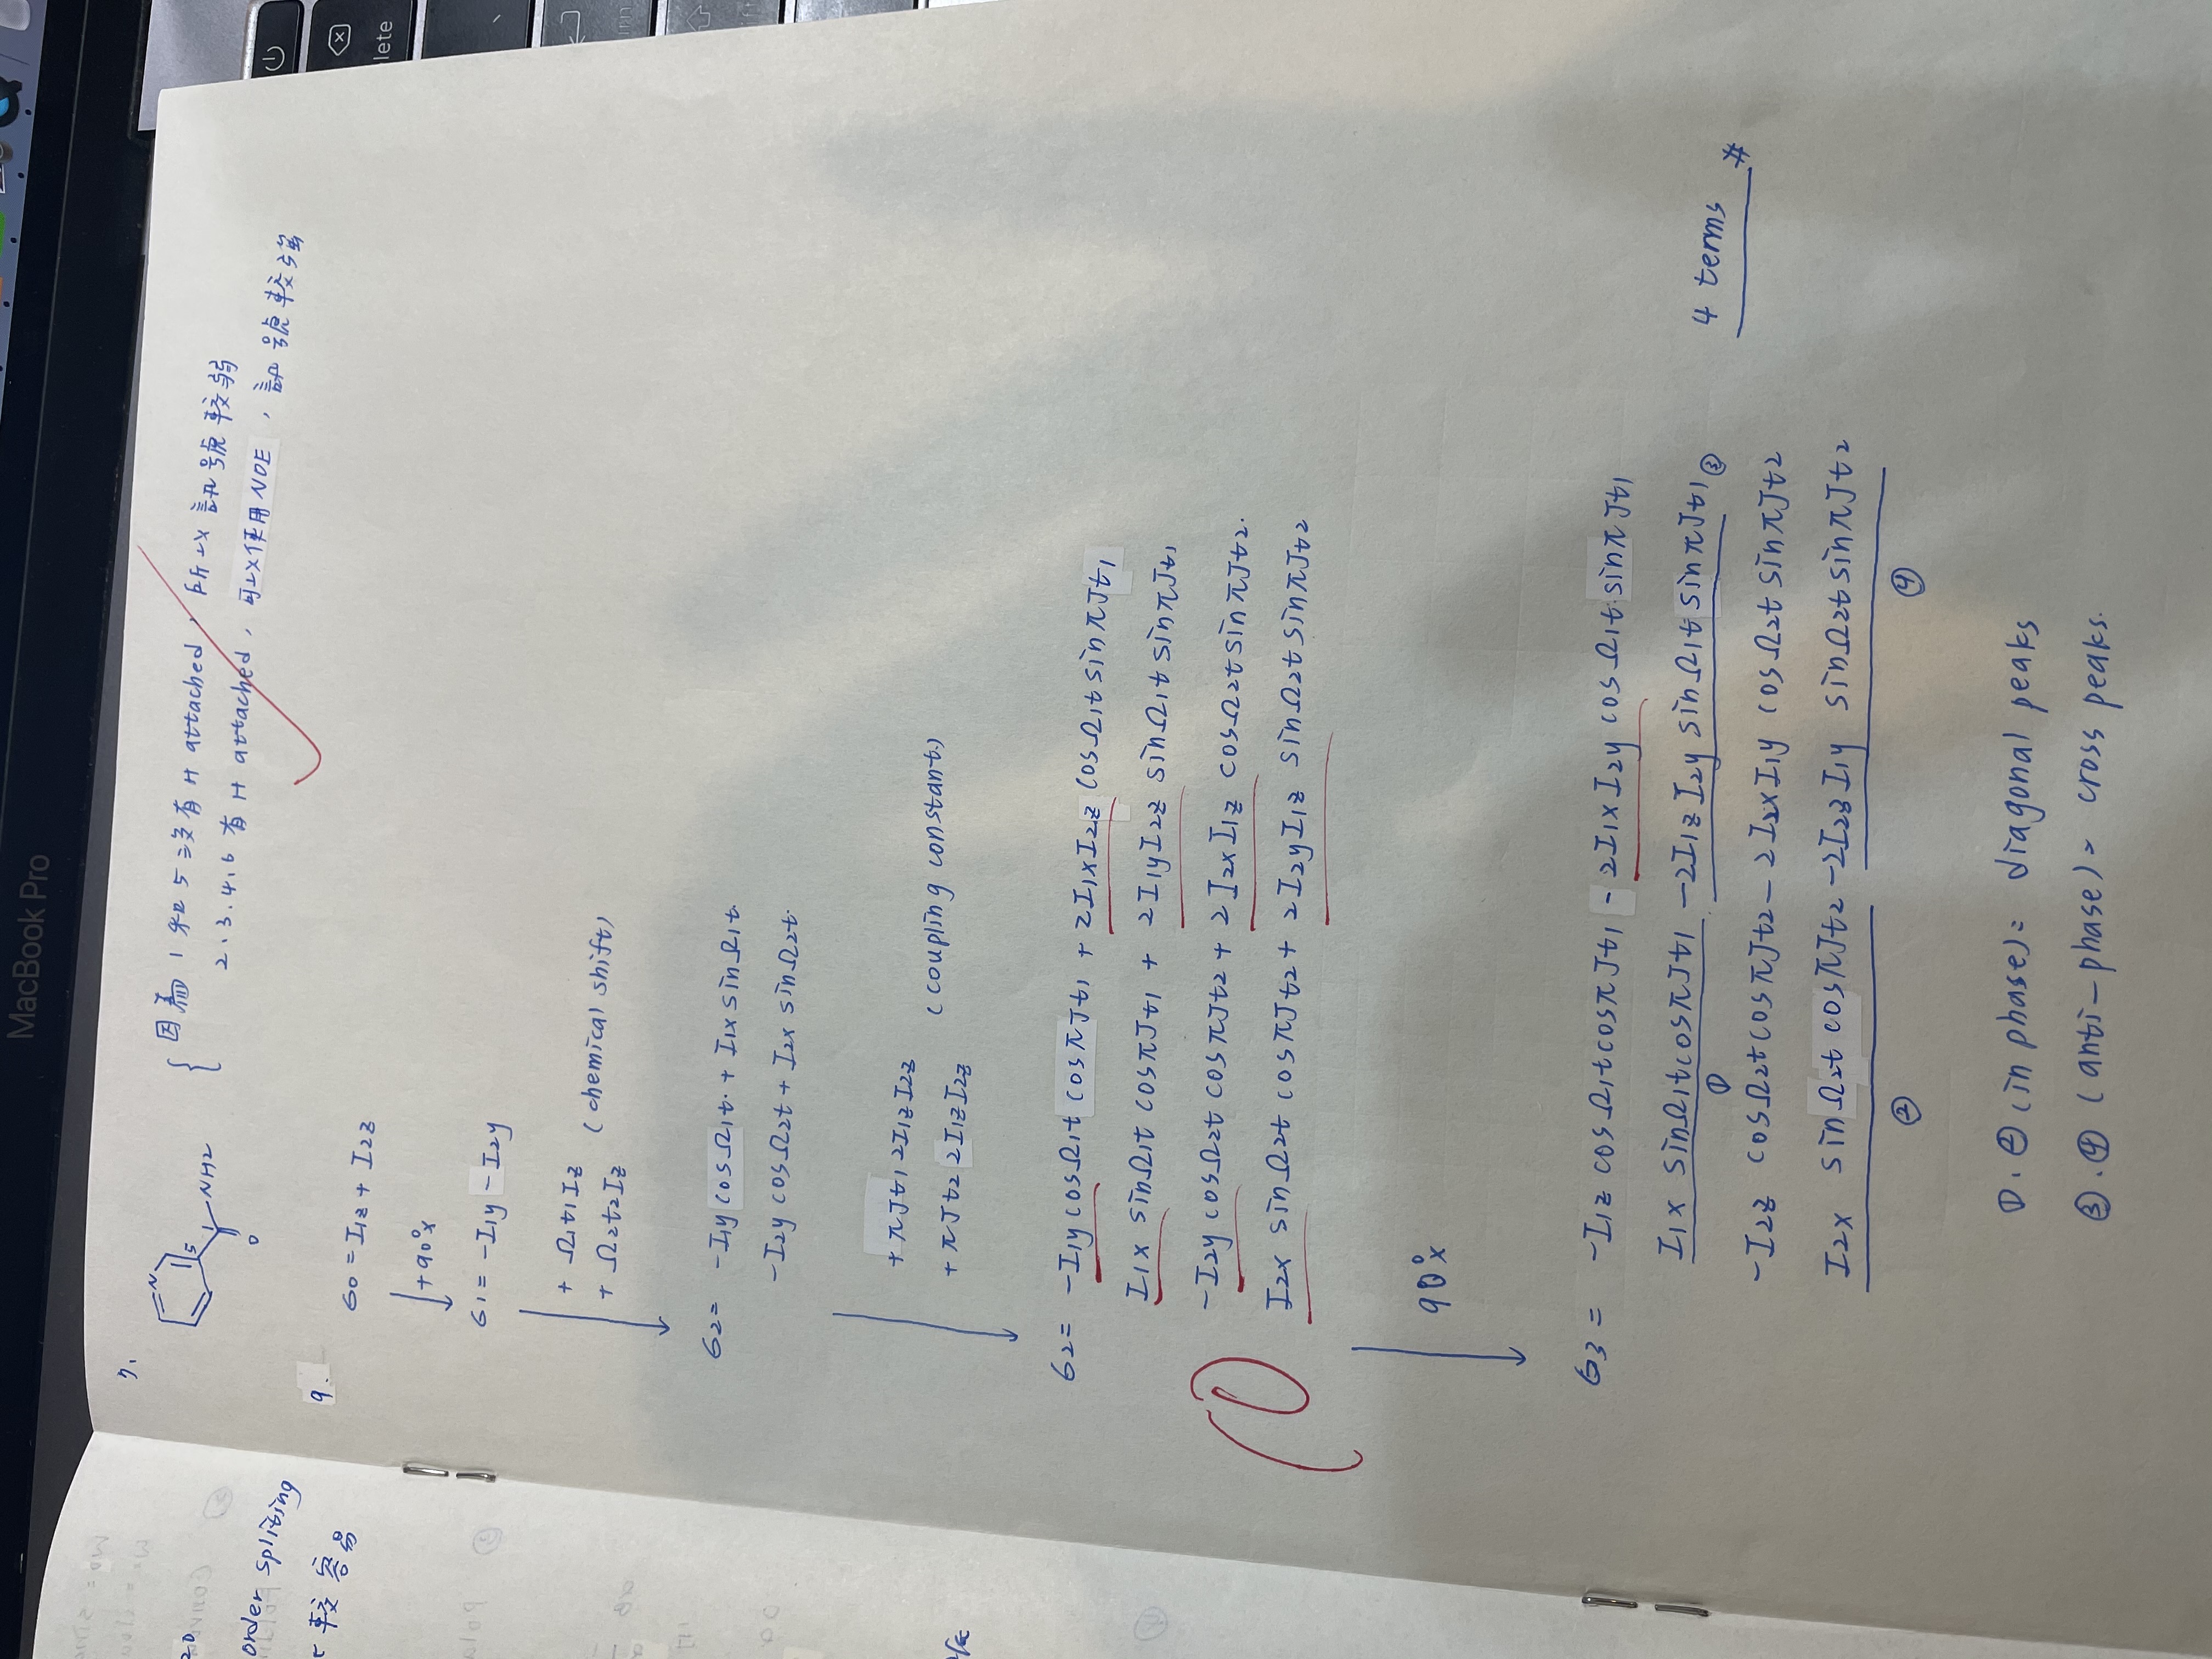 MacBook Pro
7.
N
5
1
NH2
O
因為 1 和 5 沒有 H attached, 所以訊號較弱
2.3.4.6 有 H attached, 可以使用 NOE, 訊號較強
20
order spliting
較容易
9.
б0 = I1z + I2z
+90°x
б1 = -I1y - I2y
+ Ω1t1Iz
+ Ω2t2Iz
(chemical shift)
б2= -I1y cosΩ1t + I1x sinΩ1t
-I2y cosΩ2t + I2x sinΩ2t
+ πJt1 2I1zI2z
+ πJt2 2I1zI2z
(coupling constant)
б2= -I1y cosΩ1t cosπJt1 + 2I1xI2z cosΩ1t sinπJt1
I1x sinΩ1t cosπJt1 + 2I1yI2z sinΩ1t sinπJt1
-I2y cosΩ2t cosπJt2 + 2I2xI1z cosΩ2t sinπJt2
I2x sinΩ2t cosπJt2 + 2I2yI1z sinΩ2t sinπJt2
90°x
б3 = -I1z cosΩ1t cosπJt1 - 2I1xI2y cosΩ1t sinπJt1
I1x sinΩ1t cosπJt1 - 2I1zI2y sinΩ1t sinπJt1 ③
①
4 terms #
-I2z cosΩ2t cosπJt2 - 2I2xI1y cosΩ2t sinπJt2
I2x sinΩ2t cosπJt2 - 2I2zI1y sinΩ2t sinπJt2
② ④
①.② (in phase) = diagonal peaks
③.④ (anti-phase) = cross peaks.
lete